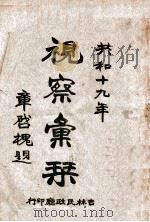 共和十九年
視察彙栞
章啓槐題
吉林民政廳印行